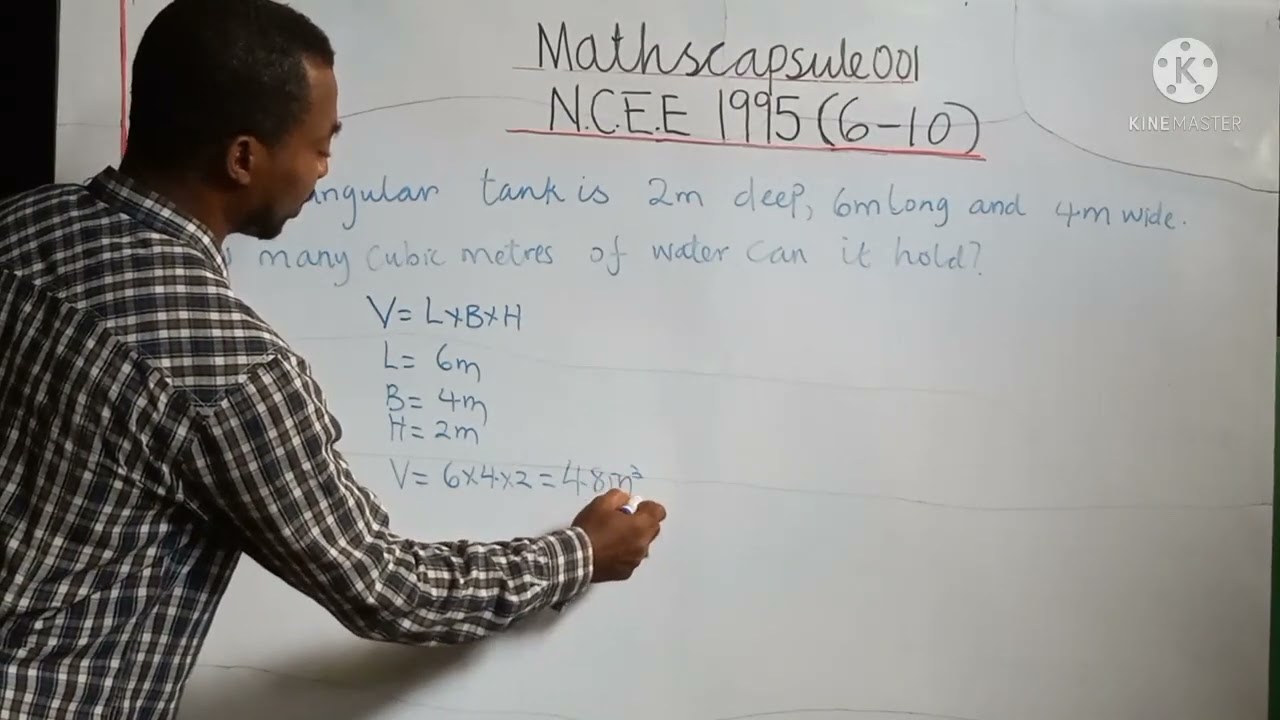 Mathscapsule001
N.C.E.E 1995 (6-10)
KINEMASTER
angular tank is 2m deep, 6m long and 4m wide.
many cubic metres of water can it hold?
V= L×B×H
L= 6m
B= 4m
H= 2m
V= 6×4×2 = 48m³